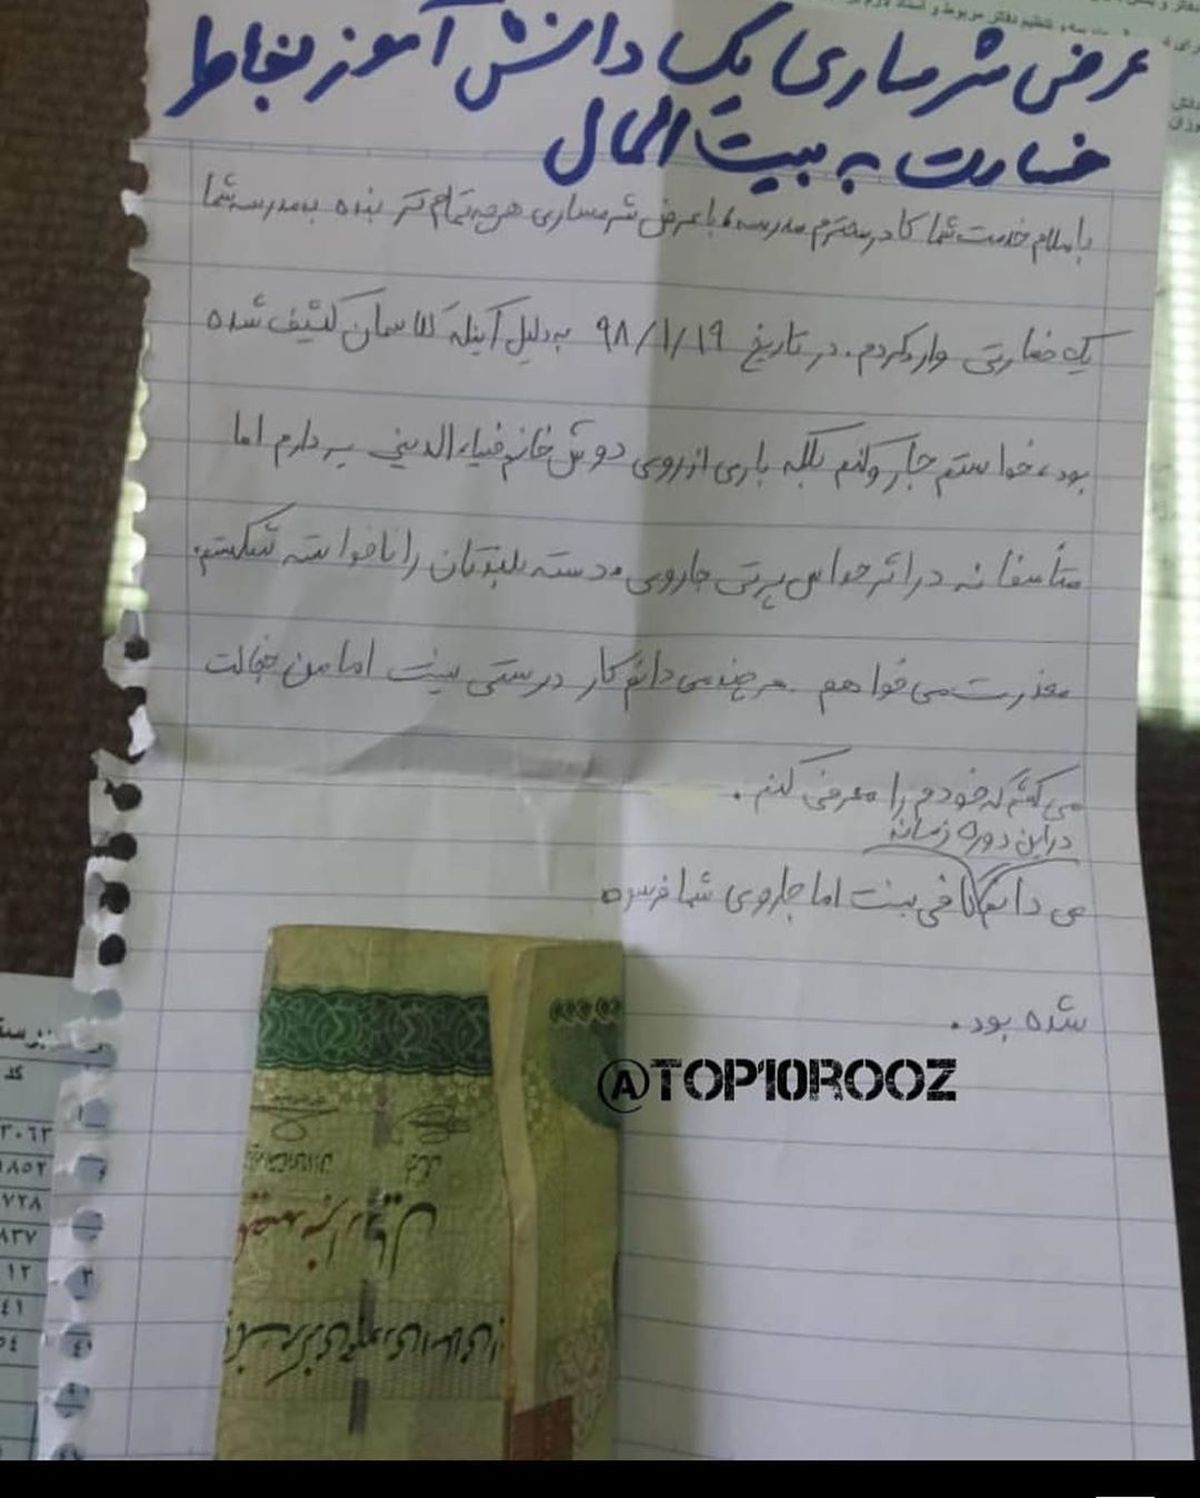 عرض شرمساری یک دانش آموز بخاطر
خسارت به بیت المال
با سلام خدمت شما کادر محترم مدرسه، با عرض شرمساری هرچه تمام تر بنده به مدرسه شما
یک خسارتی وارد کردم. در تاریخ ۹۸/۱/۱۹ به دلیل اینکه کلاسمان کثیف شده
بود، خواستم جارو کنم بلکه باری از روی دوش خانم ضیاءالدینی بردارم اما
متأسفانه در اثر حواس پرتی جاروی دسته بلندتان را ناخواسته شکستم.
معذرت می خواهم. هرچند می دانم کار درستی نیست اما من خجالت
می کشم که خودم را معرفی کنم.
در این دوره زمانه
می دانم کافی نیست اما جاروی شما فرسوده
شده بود.
@TOP10ROOZ
۳۰۶۳
۱۸۵۲
۷۲۸
۸۳۷
۱۲